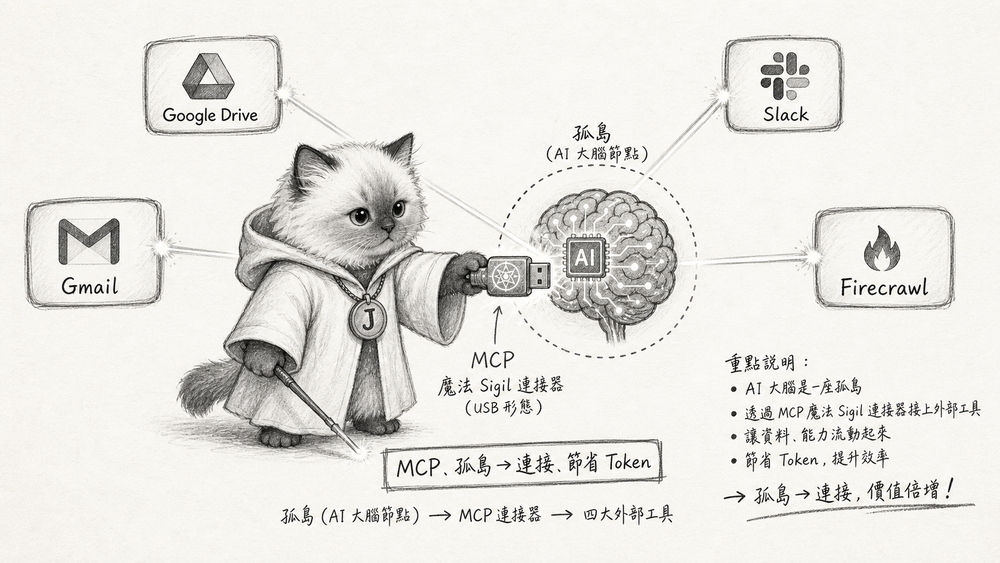 Google Drive
Slack
孤島
(AI 大腦節點)
AI
Gmail
Firecrawl
J
MCP
魔法 Sigil 連接器
(USB 形態)
重點説明：
• AI 大腦是一座孤島
• 透過 MCP 魔法 Sigil 連接器接上外部工具
• 讓資料、能力流動起來
• 節省 Token，提升效率
→ 孤島 → 連接，價值倍增！
MCP、孤島 → 連接、節省 Token
孤島 (AI 大腦節點) → MCP 連接器 → 四大外部工具